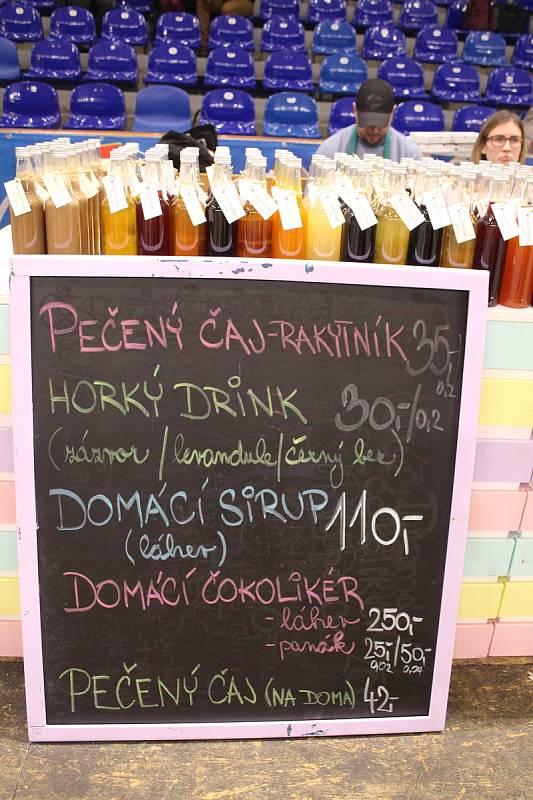 PEČENÝ ČAJ-RAKYTNÍK 35,-/0,2
HORKÝ DRINK 30,-/0,2
(zázvor/levandule/černý bez)
DOMÁCÍ SIRUP 110,-
(láhev)
DOMÁCÍ ČOKOLIKÉR
-láhev 250,-
-panák 25,-/50,-
0,02 0,04
PEČENÝ ČAJ (NA DOMA) 42,-